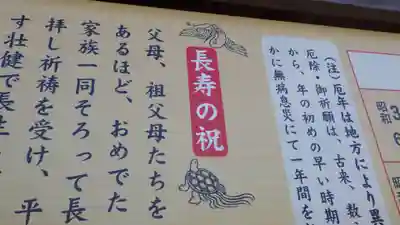 昭和
3
6
昭
(注)厄年は地方により異
厄除・御祈願は、古来、数
から、年の初めの早い時期
かに無病息災にて一年間を
長寿の祝
父母、祖父母たちを
あるほど、おめでた
家族一同そろって長
拝し祈祷を受け、平
す壮健で長生